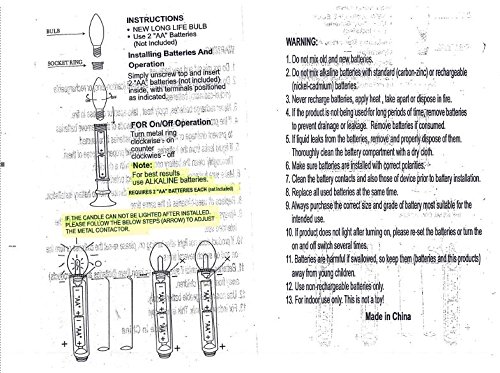 INSTRUCTIONS
• NEW LONG LIFE BULB
• Use 2 "AA" Batteries
(Not Included)
Installing Batteries And
Operation
Simply unscrew top and insert
2 "AA" batteries (not included)
inside, with terminals positioned
as indicated.
BULB
SOCKET RING
FOR On/Off Operation
Turn metal ring
clockwise - on
counter
clockwies - off
Note:
For best results
use ALKALINE batteries.
REQUIRES 2 "AA" BATTERIES EACH (not included)
IF THE CANDLE CAN NOT BE LIGHTED AFTER INSTALLED.
PLEASE FOLLOW THE BELOW STEPS (ARROW) TO ADJUST
THE METAL CONTACTOR.
WARNING:
1. Do not mix old and new batteries.
2. Do not mix alkaline batteries with standard (carbon-zinc) or rechargeable
(nickel-cadmium) batteries.
3. Never recharge batteries, apply heat, take apart or dispose in fire.
4. If the product is not being used for long periods of time, remove batteries
to prevent draining or leakage. Remove batteries if consumed.
5. If liquid leaks from the batteries, remove and properly dispose of them.
Thoroughly clean the battery compartment with a dry cloth.
6. Make sure batteries are installed with correct polarities.
7. Clean the battery contacts and also those of device prior to battery installation.
8. Replace all used batteries at the same time.
9. Always purchase the correct size and grade of battery most suitable for the
intended use.
10. If product does not light after turning on, please re-set the batteries or turn the
on and off switch several times.
11. Batteries are harmful if swallowed, so keep them (batteries and this products)
away from young children.
12. Use non-rechargeable batteries only.
13. For indoor use only. This is not a toy!
Made in China